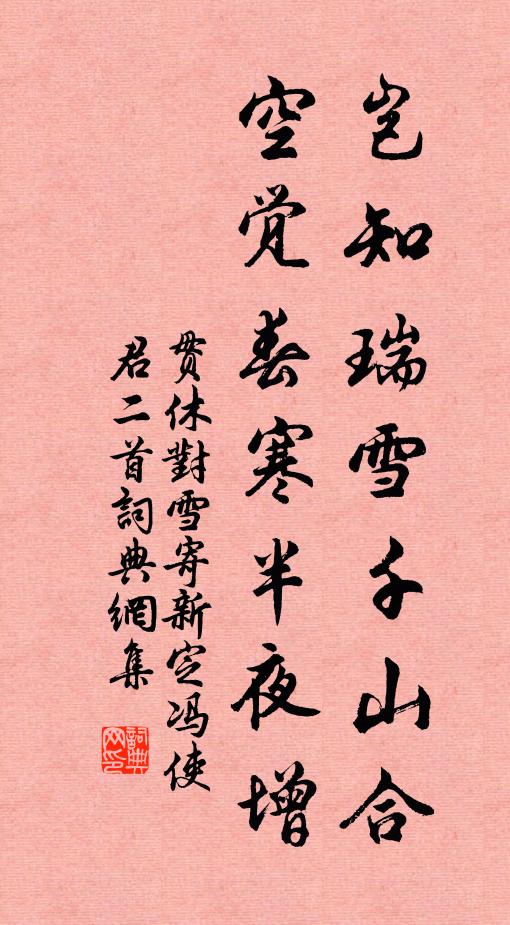 岂知瑞雪千山合
空觉春寒半夜增
贯休對雪寄新定冯使
君二首詞典網集
詞典网印